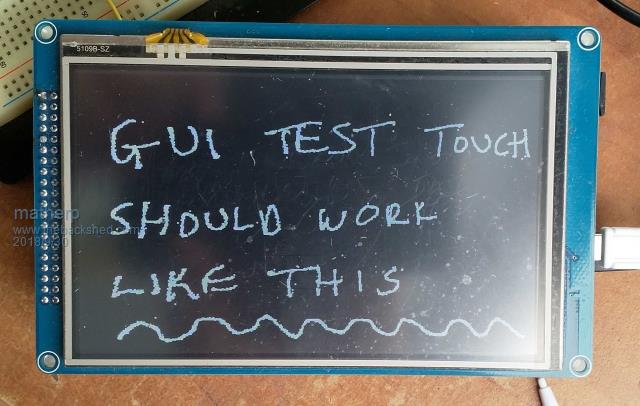 5109B-SZ
GUI TEST TOUCH
SHOULD WORK
LIKE THIS
matherp
www.thebackshed.com